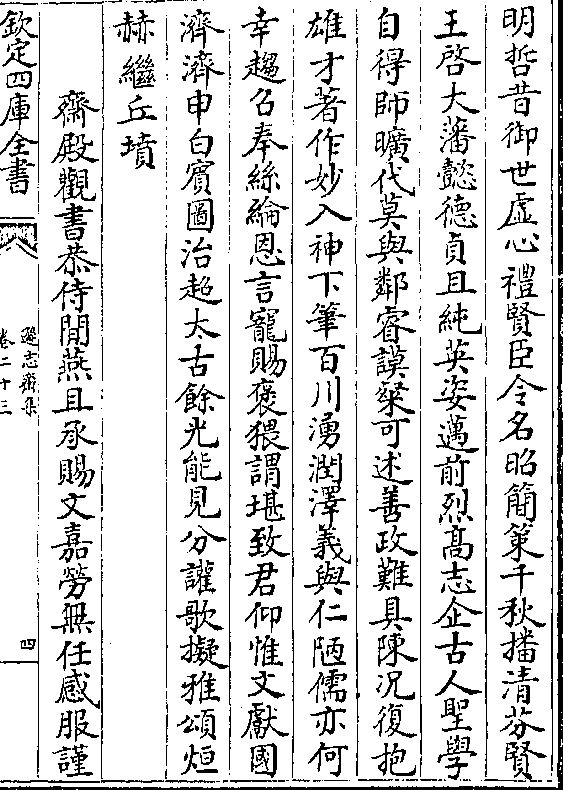 明哲昔御世虛心禮賢臣令名昭簡䇿千秋播清芬賢
王啓大藩懿德貞且純英姿邁前烈髙志企古人聖學
自得師曠代莫與鄰睿謨粲可述善政難具陳况復抱
雄才著作妙入神下筆百川湧潤澤義與仁陋儒亦何
幸趨召奉絲綸恩言寵賜褒猥謂堪致君仰惟文獻國
濟濟申白賓圖治超大古餘光能見分讙歌擬雅頌烜
赫繼丘墳
齋殿觀書恭侍閒燕且承賜文嘉勞無任感服謹
欽定四庫全書
遜志齋集
卷二十三
四